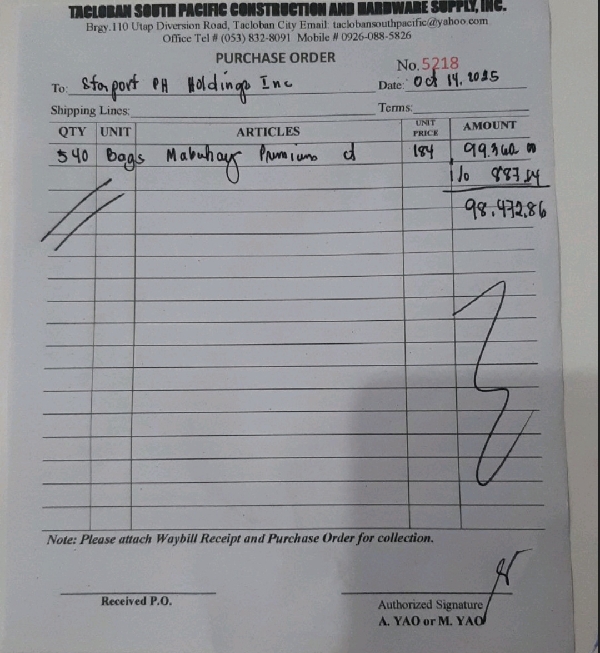 TACLOBAN SOUTH PACIFIC CONSTRUCTION AND HARDWARE SUPPLY, INC.
Brgy.110 Utap Diversion Road, Tacloban City Email: taclobansouthpacific@yahoo.com
Office Tel # (053) 832-8091 Mobile # 0926-088-5826
PURCHASE ORDER
No. 5218
To: Starport PH Holdings Inc Date: Oct 14. 2025
Shipping Lines: Terms:
QTY UNIT ARTICLES UNIT PRICE AMOUNT
540 Bags Mabuhay Premium d 184 99.360 00
1% 887.14
98,472.86
Note: Please attach Waybill Receipt and Purchase Order for collection.
Received P.O.
Authorized Signature
A. YAO or M. YAO